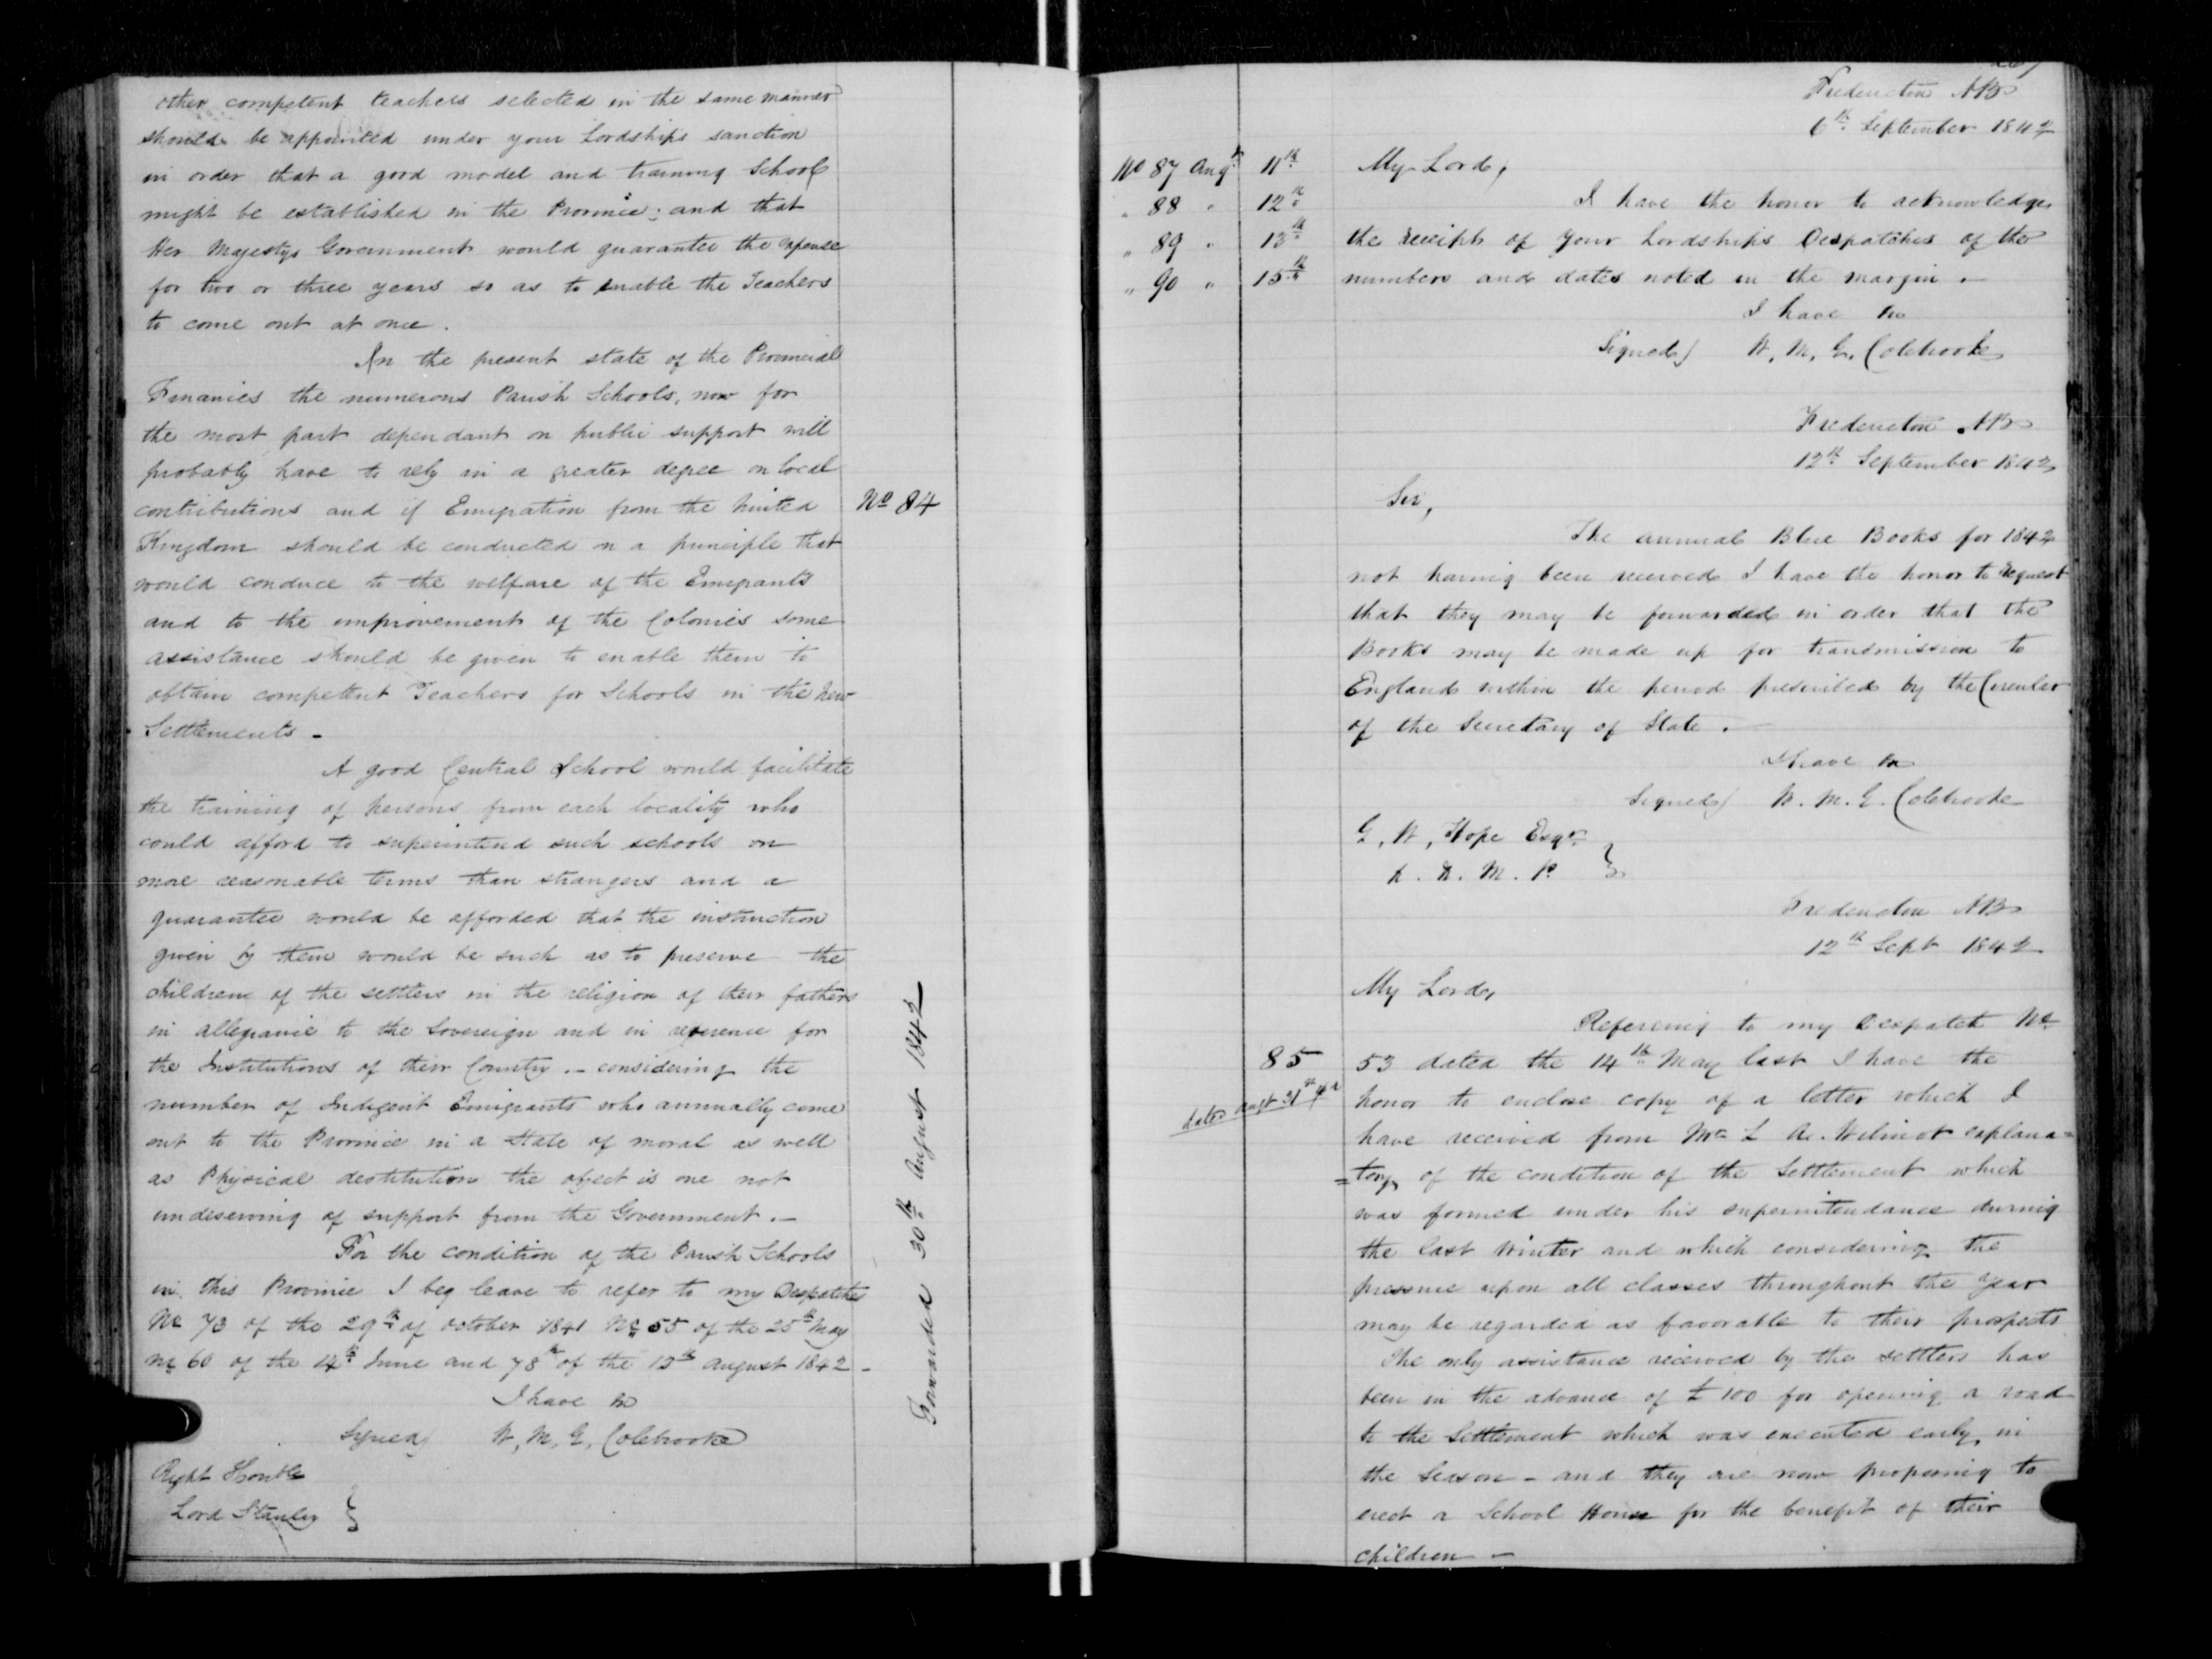 other competent teachers selected in the same manner
should be appointed under your Lordships sanction
in order that a good model and training School
might be established in the Province; and that
Her Majestys Government would guarantee the expense
for two or three years so as to enable the Teachers
to come out at once.
In the present state of the Provincial
Finances the numerous Parish Schools, now for
the most part dependant on public support will
probably have to rely in a greater degree on local
contributions and if Emigration from the United
No 84
Kingdom should be conducted on a principle that
would conduce to the welfare of the Emigrants
and to the improvement of the Colonies some
assistance should be given to enable them to
obtain competent Teachers for Schools in the New
Settlements -
A good Central School would facilitate
the training of persons from each locality who
could afford to superintend such schools on
more reasonable terms than strangers and a
guarantee would be afforded that the instruction
given by them would be such as to preserve the
children of the settlers in the religion of their fathers
in allegiance to the Sovereign and in reverence for
the Institutions of their Country. - considering the
number of Indigent Emigrants who annually come
out to the Province in a State of moral as well
as Physical destitution the object is one not
undeserving of support from the Government. -
For the condition of the Parish Schools
in this Province I beg leave to refer to my Despatches
No 73 of the 29th of October 1841 No 55 of the 25th May
No 60 of the 14th June and 78th of the 13th August 1842 -
I have &c
Signed) W, M, G, Colebrooke
Right Honble
Lord Stanley }
Forwarded 30th August 1842
Fredericton NB
6th September 1842
No 87 Augt 11th
" 88 " 12th
" 89 " 13th
" 90 " 15th
My Lord,
I have the honor to acknowledge
the receipt of your Lordships Despatches of the
numbers and dates noted in the margin.
I have &c
Signed) W, M, G, Colebrooke
Fredericton NB
12th September 1842
Sir,
The annual Blue Books for 1842
not having been received I have the honor to request
that they may be forwarded in order that the
Books may be made up for transmission to
England within the period prescribed by the Circular
of the Secretary of State. -
I have &c
Signed) W. M. G. Colebrooke
G, W, Hope Esqr
M. P. }
Fredericton NB
12th Sept 1842
My Lord,
Referring to my Despatch No
85
53 dated the 14th May last I have the
dated augt 31st 42
honor to enclose copy of a letter which I
have received from Mr L A. Wilmot explana=
=tory of the condition of the Settlement which
was formed under his superintendance during
the last Winter and which considering the
pressure upon all classes throughout the year
may be regarded as favorable to their prospects
The only assistance received by the settlers has
been in the advance of £100 for opening a road
to the Settlement which was executed early in
the Season - and they are now proposing to
erect a School House for the benefit of their
children -